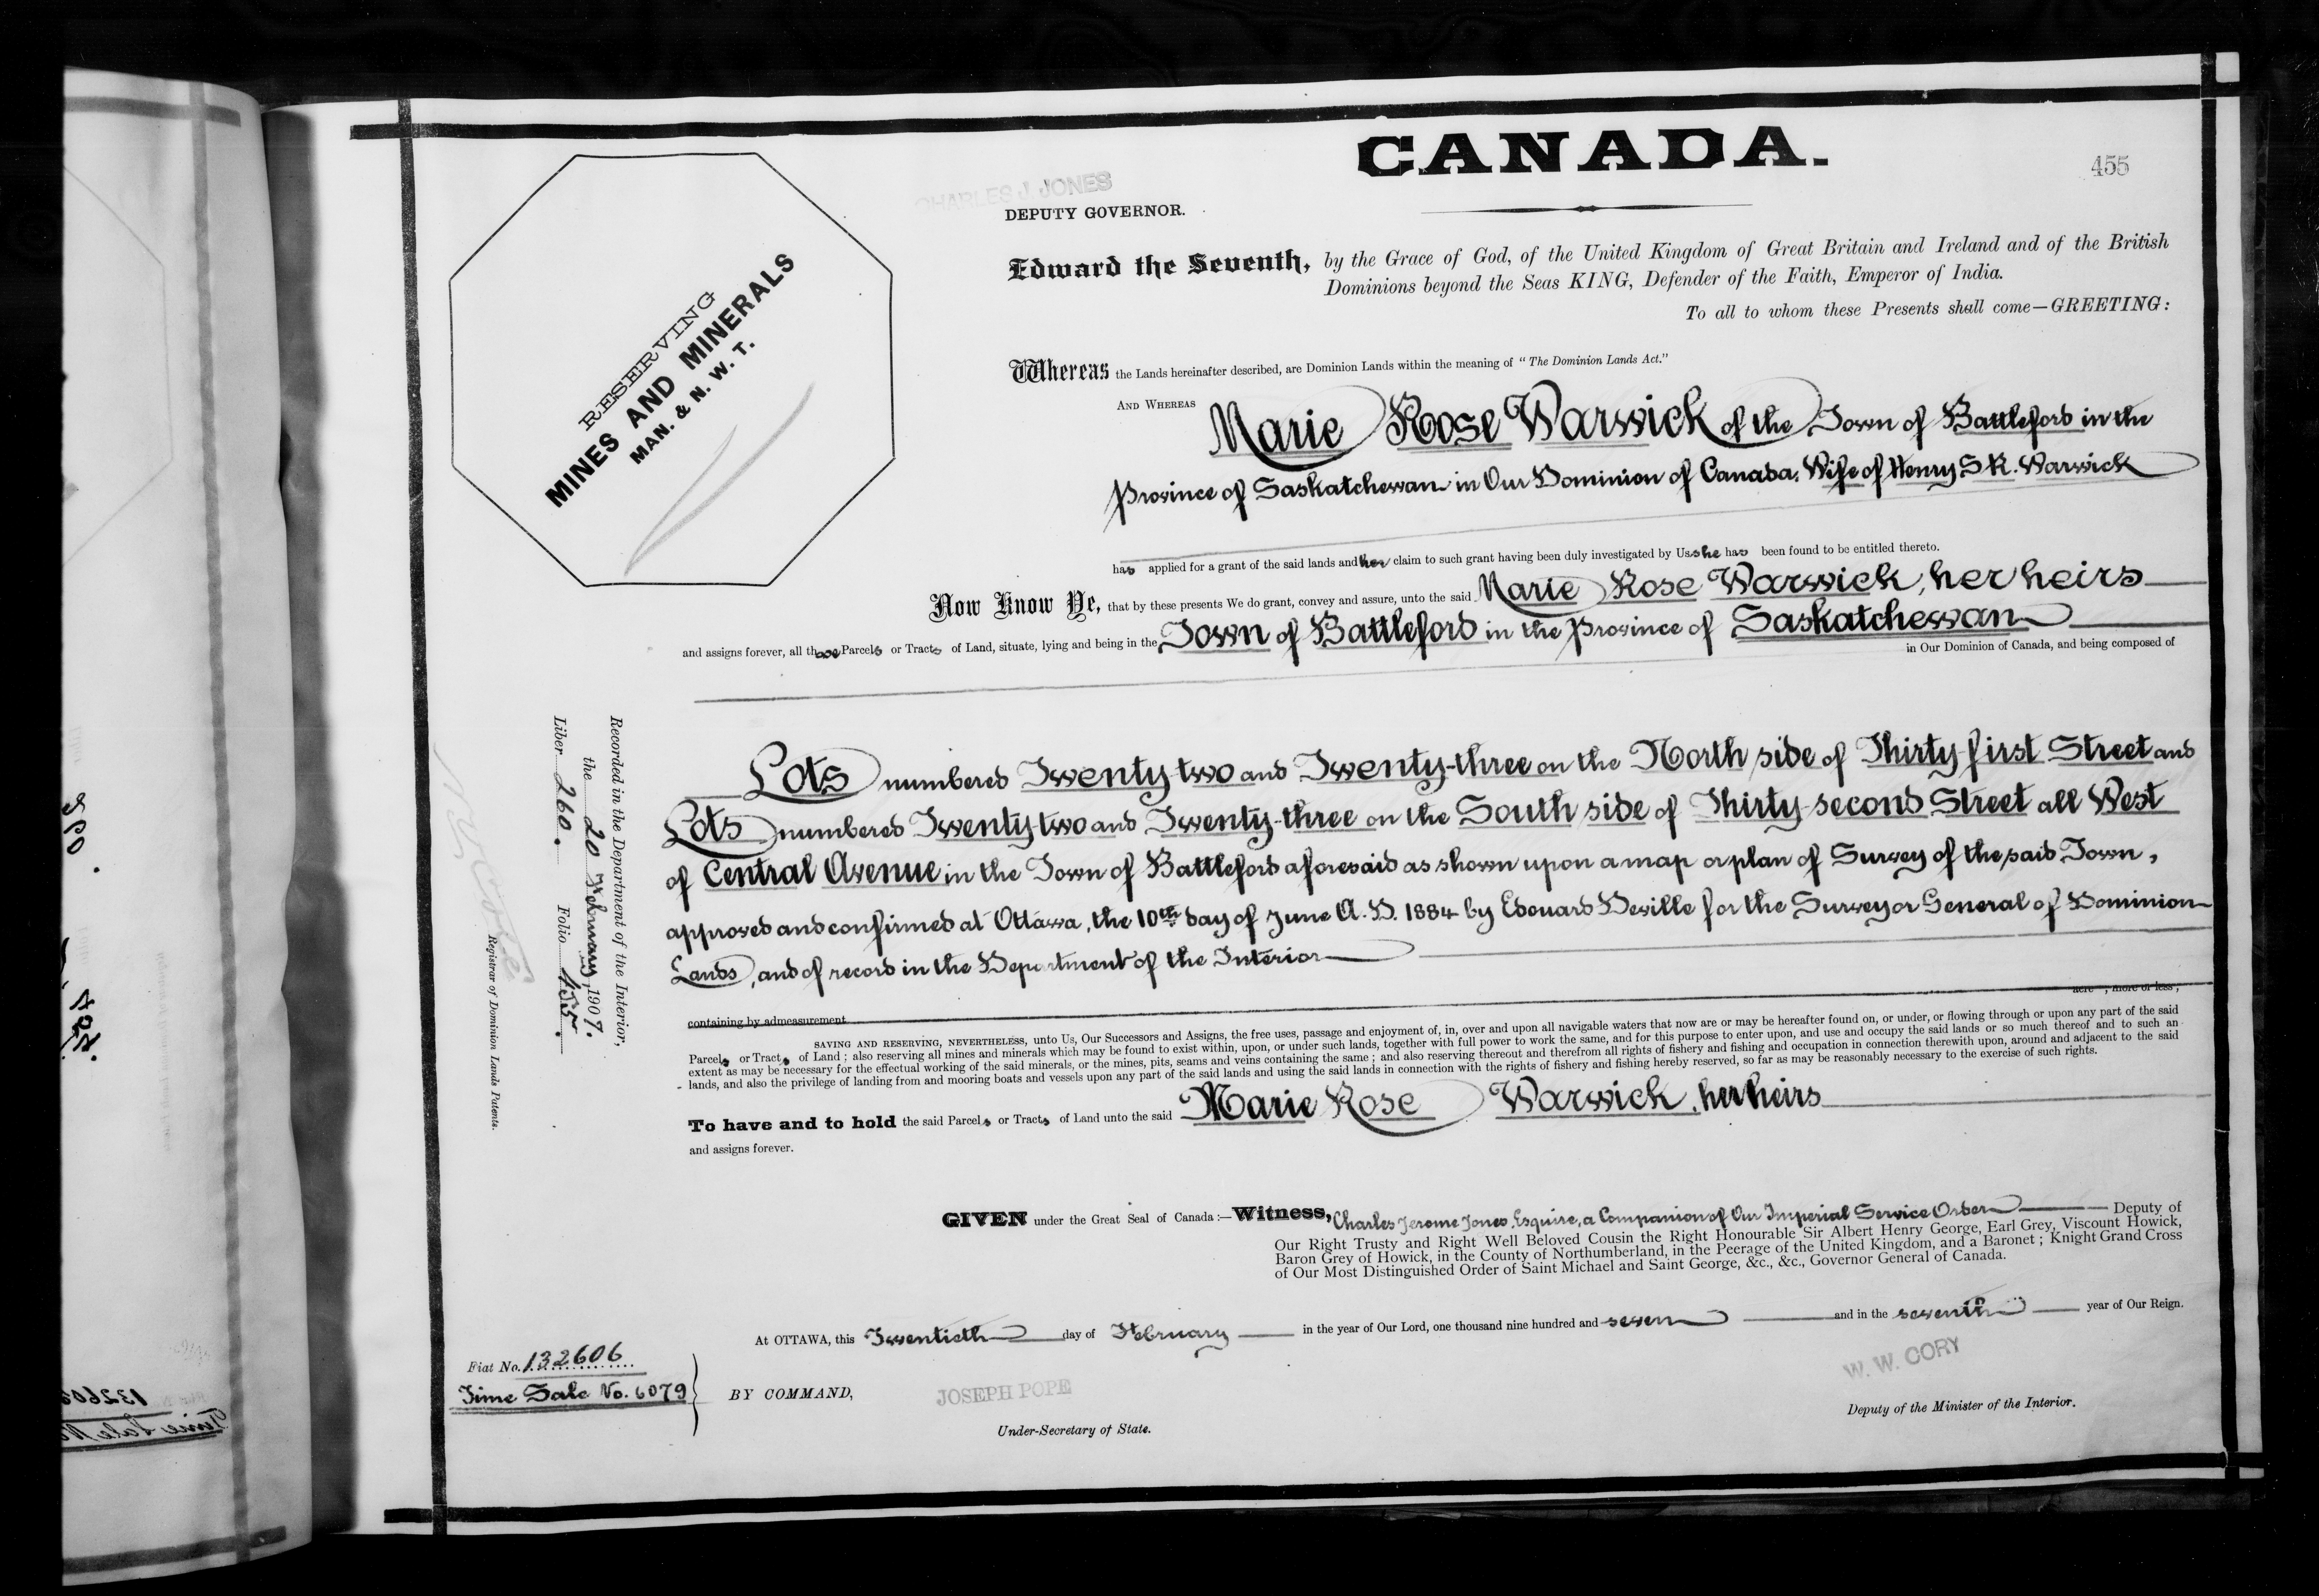 CANADA.
455
CHARLES J. JONES
DEPUTY GOVERNOR.
RESERVING
MINES AND MINERALS
MAN. & N. W. T.
Edward the Seventh, by the Grace of God, of the United Kingdom of Great Britain and Ireland and of the British
Dominions beyond the Seas KING, Defender of the Faith, Emperor of India.
To all to whom these Presents shall come—GREETING:
Whereas the Lands hereinafter described, are Dominion Lands within the meaning of "The Dominion Lands Act."
AND WHEREAS Marie Rose Warwick of the Town of Battleford in the
Province of Saskatchewan in Our Dominion of Canada, Wife of Henry S. R. Warwick
has applied for a grant of the said lands and her claim to such grant having been duly investigated by Us she has been found to be entitled thereto.
Now Know Ye, that by these presents We do grant, convey and assure, unto the said Marie Rose Warwick, her heirs
and assigns forever, all those Parcels or Tracts of Land, situate, lying and being in the Town of Battleford in the Province of Saskatchewan
in Our Dominion of Canada, and being composed of
Lots numbered Twenty-two and Twenty-three on the North side of Thirty-first Street and
Lots numbered Twenty-two and Twenty-three on the South side of Thirty-second Street all West
of Central Avenue in the Town of Battleford aforesaid as shown upon a map or plan of Survey of the said Town,
approved and confirmed at Ottawa, the 10th day of June A.D. 1884 by Edouard Deville for the Surveyor General of Dominion
Lands, and of record in the Department of the Interior
containing by admeasurement acre , more or less;
SAVING AND RESERVING, NEVERTHELESS, unto Us, Our Successors and Assigns, the free uses, passage and enjoyment of, in, over and upon all navigable waters that now are or may be hereafter found on, or under, or flowing through or upon any part of the said
Parcels or Tracts of Land; also reserving all mines and minerals which may be found to exist within, upon, or under such lands, together with full power to work the same, and for this purpose to enter upon, and use and occupy the said lands or so much thereof and to such an
extent as may be necessary for the effectual working of the said minerals, or the mines, pits, seams and veins containing the same; and also reserving thereout and therefrom all rights of fishery and fishing and occupation in connection therewith upon, around and adjacent to the said
lands, and also the privilege of landing from and mooring boats and vessels upon any part of the said lands and using the said lands in connection with the rights of fishery and fishing hereby reserved, so far as may be reasonably necessary to the exercise of such rights.
To have and to hold the said Parcels or Tracts of Land unto the said Marie Rose Warwick, her heirs
and assigns forever.
Recorded in the Department of the Interior,
the 20 February, 1907.
Liber 260. Folio 455.
Registrar of Dominion Lands Patents.
GIVEN under the Great Seal of Canada:—Witness, Charles Jerome Jones, Esquire, a Companion of Our Imperial Service Order Deputy of
Our Right Trusty and Right Well Beloved Cousin the Right Honourable Sir Albert Henry George, Earl Grey, Viscount Howick,
Baron Grey of Howick, in the County of Northumberland, in the Peerage of the United Kingdom, and a Baronet; Knight Grand Cross
of Our Most Distinguished Order of Saint Michael and Saint George, &c., &c., Governor General of Canada.
At OTTAWA, this Twentieth day of February in the year of Our Lord, one thousand nine hundred and seven and in the seventh year of Our Reign.
Fiat No. 132606
Time Sale No. 6079
BY COMMAND,
JOSEPH POPE
Under-Secretary of State.
W. W. CORY
Deputy of the Minister of the Interior.